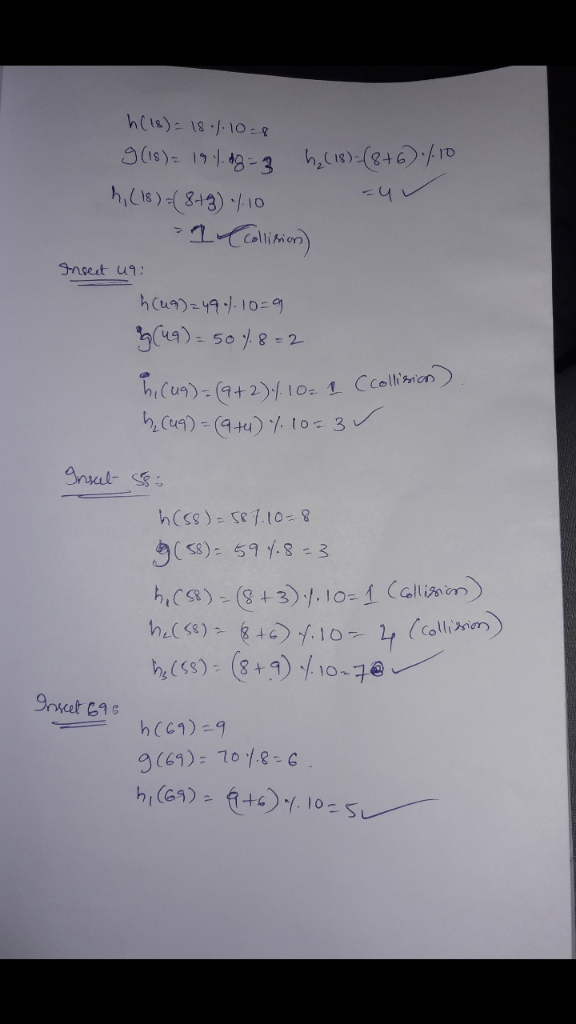 h(18) = 18 % 10 = 8
g(18) = 19 % 8 = 3 h₂(18) = (8+6) % 10
h₁(18) = (8+3) % 10 = 4 ✓
= 1 (collision)
Insert 49:
h(49) = 49 % 10 = 9
g(49) = 50 % 8 = 2
h₁(49) = (9+2) % 10 = 1 (collision)
h₂(49) = (9+4) % 10 = 3 ✓
Insert 58:
h(58) = 58 % 10 = 8
g(58) = 59 % 8 = 3
h₁(58) = (8+3) % 10 = 1 (collision)
h₂(58) = (8+6) % 10 = 4 (collision)
h₃(58) = (8+9) % 10 = 7 ✓
Insert 69:
h(69) = 9
g(69) = 70 % 8 = 6.
h₁(69) = (9+6) % 10 = 5 ✓